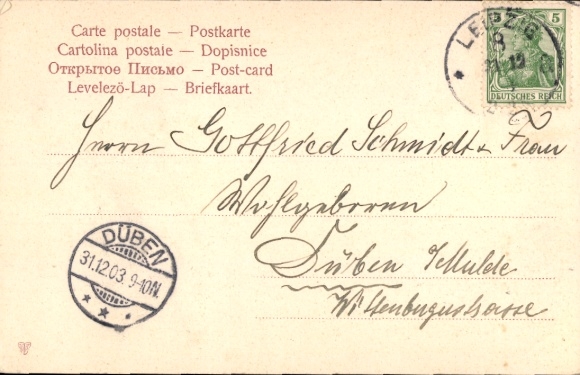 Carte postale — Postkarte
Cartolina postale — Dopisnice
Открытое Письмо — Post-card
Levelező-Lap — Briefkaart.
LEIPZIG
8
31.12
5
DEUTSCHES REICH
Herrn Gottfried Schmidt & Frau
Wohlgeboren
Düben Mulde
Wittenbugerstrasse
DÜBEN
31.12.03. 9-10N.